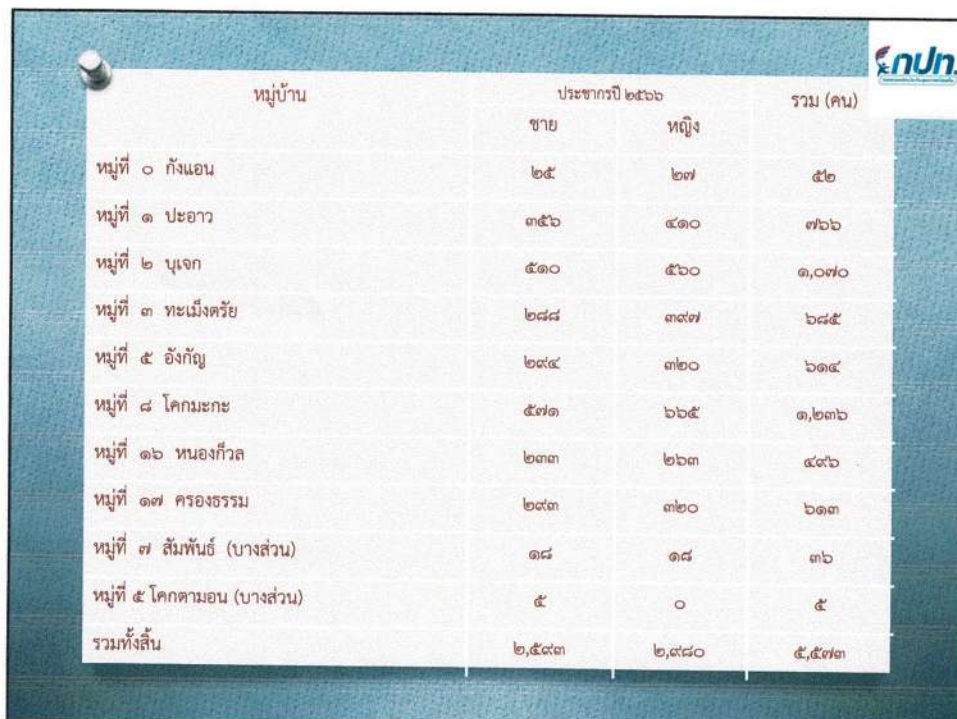 กปท.
หมู่บ้าน ประชากรปี ๒๕๖๖ รวม (คน)
ชาย หญิง
หมู่ที่ ๐ กังแอน ๒๕ ๒๗ ๕๒
หมู่ที่ ๑ ปะอาว ๓๕๖ ๔๑๐ ๗๖๖
หมู่ที่ ๒ บุเจก ๕๑๐ ๕๖๐ ๑,๐๗๐
หมู่ที่ ๓ ทะเม็งตรัย ๒๘๘ ๓๙๗ ๖๘๕
หมู่ที่ ๕ อังกัญ ๒๙๔ ๓๒๐ ๖๑๔
หมู่ที่ ๘ โคกมะกะ ๕๗๑ ๖๖๕ ๑,๒๓๖
หมู่ที่ ๑๖ หนองก๊วล ๒๓๓ ๒๖๓ ๔๙๖
หมู่ที่ ๑๗ ครองธรรม ๒๙๓ ๓๒๐ ๖๑๓
หมู่ที่ ๗ สัมพันธ์ (บางส่วน) ๑๘ ๑๘ ๓๖
หมู่ที่ ๕ โคกตามอน (บางส่วน) ๕ ๐ ๕
รวมทั้งสิ้น ๒,๕๙๓ ๒,๙๘๐ ๕,๕๗๓